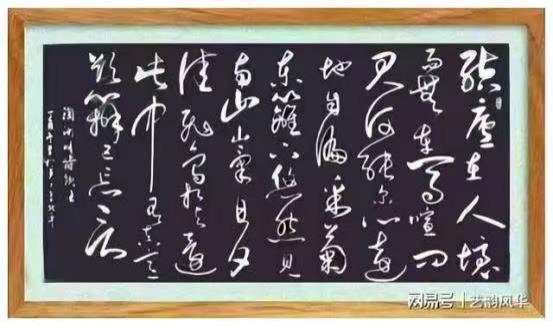 結廬在人境
而無車馬喧问
君何能尔心遠
地自偏采菊
東籬下悠然見
南山山氣日夕
佳飛鳥相与還
此中有真意
欲辯已忘言
陶淵明詩飲酒
网易号 | 艺韵风华